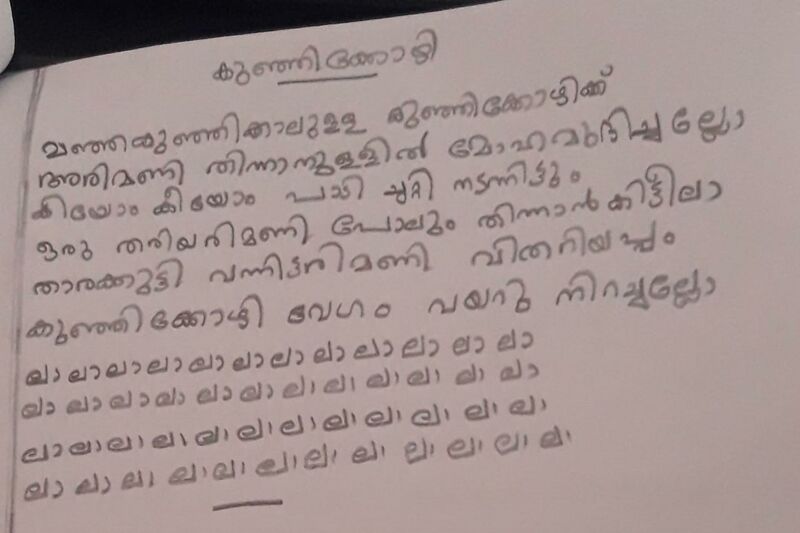 കുഞ്ഞിക്കോഴി
മഞ്ഞകുഞ്ഞിക്കാലുള്ള കുഞ്ഞിക്കോഴിക്ക്
അരിമണി തിന്നാനുള്ളിൽ മോഹമുദിച്ചല്ലോ
കിയോം കിയോം പാടി ചുറ്റി നടന്നിട്ടും
ഒരു തരിയരിമണി പോലും തിന്നാൻ കിട്ടീലാ
താരക്കുട്ടി വന്നിട്ടരിമണി വിതറിയപ്പം
കുഞ്ഞിക്കോഴി വേഗം വയറു നിറച്ചല്ലോ
ലാ ലാ ലാ ലാ ലാ ലാ ലാ ലാ ലാ ലാ ലാ ലാ
ലാ ലാ ലാ ലാ ലാ ലാ ലാ ലാ ലാ ലാ ലാ ലാ
ലാ ലാ ലാ ലാ ലാ ലാ ലാ ലാ ലാ ലാ ലാ ലാ
ലാ ലാ ലാ ലാ ലാ ലാ ലാ ലാ ലാ ലാ ലാ ലാ